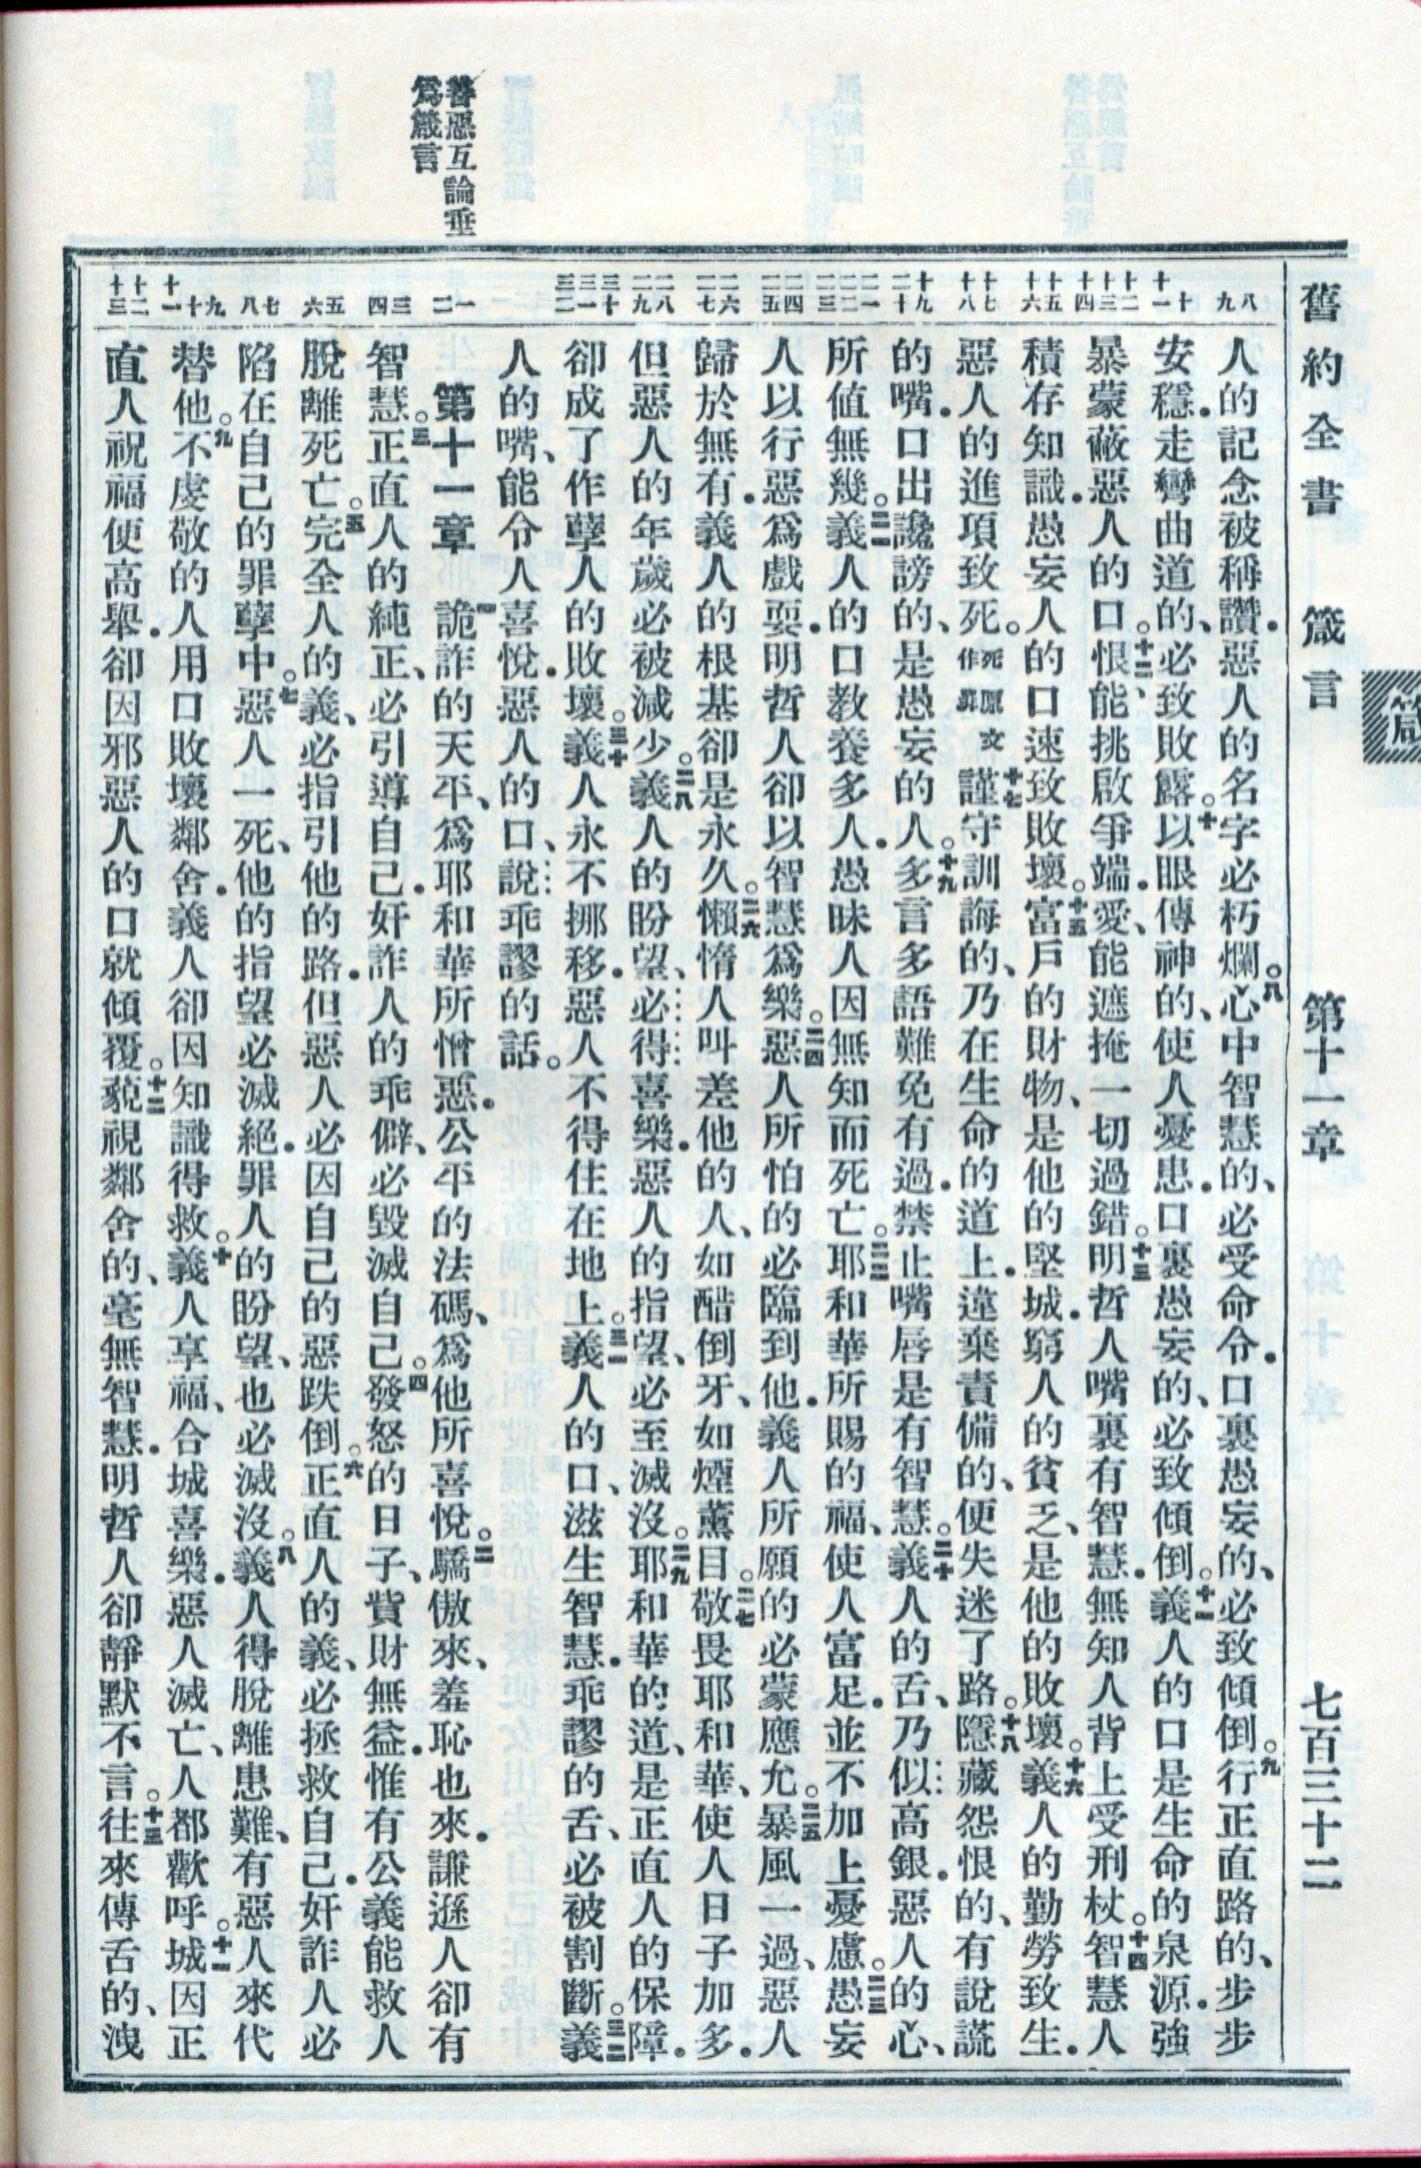 舊約全書 箴言 第十一章 七百三十二
箴
善惡互論垂
爲箴言
八 九
十 十一
十二 十三 十四
十五 十六
十七 十八
十九 二十
二一 二二 二三
二四 二五
二六 二七
二八 二九
三十 三一 三二
一 二
三 四
五 六
七 八
九 十 十一
十二 十三
人的記念被稱讚．惡人的名字必朽爛。八心中智慧的、必受命令．口裏愚妄的、必致傾倒。九行正直路的、步步
安穩．走彎曲道的、必致敗露。十以眼傳神的、使人憂患．口裏愚妄的、必致傾倒。十一義人的口是生命的泉源．強
暴蒙蔽惡人的口。十二恨、能挑啟爭端．愛、能遮掩一切過錯。十三明哲人嘴裏有智慧．無知人背上受刑杖。十四智慧人
積存知識．愚妄人的口速致敗壞。十五富戶的財物、是他的堅城．窮人的貧乏、是他的敗壞。十六義人的勤勞致生．
惡人的進項致死。死原文作罪十七謹守訓誨的、乃在生命的道上．違棄責備的、便失迷了路。十八隱藏怨恨的、有說謊
的嘴．口出讒謗的、是愚妄的人。十九多言多語難免有過．禁止嘴唇是有智慧。二十義人的舌、乃似高銀．惡人的心、
所值無幾。二一義人的口教養多人．愚昧人因無知而死亡。二二耶和華所賜的福、使人富足．並不加上憂慮。二三愚妄
人以行惡爲戲耍．明哲人卻以智慧爲樂。二四惡人所怕的必臨到他．義人所願的必蒙應允。二五暴風一過、惡人
歸於無有．義人的根基卻是永久。二六懶惰人叫差他的人、如醋倒牙、如煙薰目。二七敬畏耶和華、使人日子加多．
但惡人的年歲必被減少。二八義人的盼望、必得喜樂．惡人的指望、必至滅沒。二九耶和華的道、是正直人的保障．
卻成了作孽人的敗壞。三十義人永不挪移．惡人不得住在地上。三一義人的口、滋生智慧．乖謬的舌、必被割斷。三二義
人的嘴、能令人喜悅．惡人的口、說乖謬的話。
第十一章 一詭詐的天平、爲耶和華所憎惡．公平的法碼、爲他所喜悅。二驕傲來、羞恥也來．謙遜人卻有
智慧。三正直人的純正、必引導自己．奸詐人的乖僻、必毀滅自己。四發怒的日子、貲財無益．惟有公義能救人
脫離死亡。五完全人的義、必指引他的路．但惡人必因自己的惡跌倒。六正直人的義、必拯救自己．奸詐人必
陷在自己的罪孽中。七惡人一死、他的指望必滅絕．罪人的盼望、也必滅沒。八義人得脫離患難、有惡人來代
替他。九不虔敬的人用口敗壞鄰舍．義人卻因知識得救。十義人享福、合城喜樂．惡人滅亡、人都歡呼。十一城因正
直人祝福便高舉．卻因邪惡人的口就傾覆。十二藐視鄰舍的、毫無智慧．明哲人卻靜默不言。十三往來傳舌的、洩